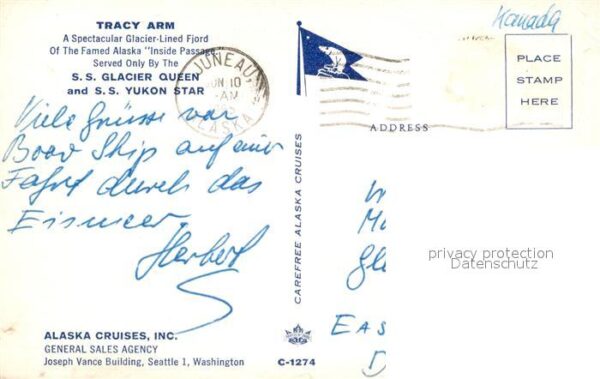 TRACY ARM
A Spectacular Glacier-Lined Fjord
Of The Famed Alaska "Inside Passage"
Served Only By The
S.S. GLACIER QUEEN
and S.S. YUKON STAR
Viele Grüsse von
Board Ship auf einer
Fahrt durch das
Eismeer
Herbert
ALASKA CRUISES, INC.
GENERAL SALES AGENCY
Joseph Vance Building, Seattle 1, Washington
CAREFREE ALASKA CRUISES
C-1274
JUNEAU
JUN 10
AM
ALASKA
Kanada
PLACE
STAMP
HERE
ADDRESS
privacy protection
Datenschutz
EAS
D